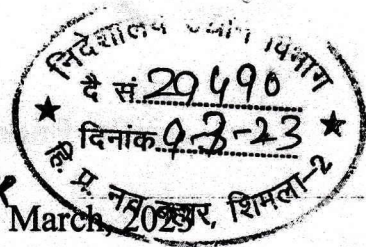 निदेशालय उद्यान विभाग
दै सं. 20490
दिनांक 9-3-23
हि. प्र. नव बहार, शिमला-2
March, 2023